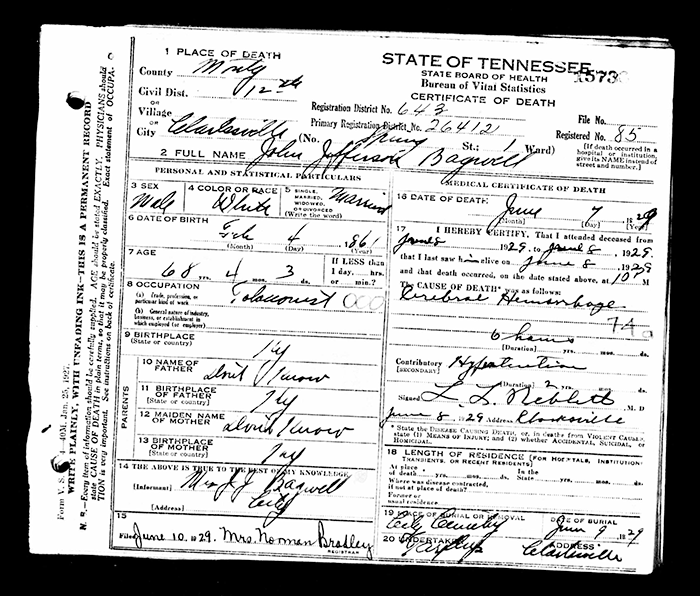 1 PLACE OF DEATH
County Montg
Civil Dist. 12th
OR
Village
OR
City Clarksville (No. Spring St.; 1 Ward)
STATE OF TENNESSEE
STATE BOARD OF HEALTH
Bureau of Vital Statistics
CERTIFICATE OF DEATH
Registration District No. 643 File No.
Primary Registration District No. 26412 Registered No. 85
[If death occurred in a hospital or institution, give its NAME instead of street and number.]
2 FULL NAME John Jefferson Bagwell
PERSONAL AND STATISTICAL PARTICULARS
3 SEX Male
4 COLOR OR RACE White
5 SINGLE, MARRIED, WIDOWED OR DIVORCED (Write the word) Married
6 DATE OF BIRTH
Feb 4 1861
(Month) (Day) (Year)
7 AGE
68 yrs. 4 mos. 3
If LESS than 1 day, ... hrs. or ... min.
8 OCCUPATION
(a) Trade, profession, or particular kind of work Tobacconist
(b) General nature of industry, business, or establishment in which employed (or employer)
9 BIRTHPLACE
(State or country) Ky
PARENTS
10 NAME OF FATHER Dont Know
11 BIRTHPLACE OF FATHER
[State or country] Ky
12 MAIDEN NAME OF MOTHER Dont Know
13 BIRTHPLACE OF MOTHER
[State or country] Ky
14 THE ABOVE IS TRUE TO THE BEST OF MY KNOWLEDGE
[Informant] Mrs J J Bagwell
[Address] City
15
Filed June 10 1929. Mrs. Norman Bradley
REGISTRAR
MEDICAL CERTIFICATE OF DEATH
16 DATE OF DEATH
June 7 1929
(Month) (Day) (Year)
17 I HEREBY CERTIFY, That I attended deceased from
June 8 1929, to June 8, 1929
that I last saw him alive on June 8, 1929
and that death occurred, on the date stated above, at 10 P M
The CAUSE OF DEATH* was as follows:
Cerebral Hemorrhage
74a
6 hours
(Duration) yrs. mos. ds.
Contributory Hypertention
[SECONDARY]
(Duration) 2 yrs. mos. ds.
Signed L. L. Neblett M. D
June 8 1929 Clarksville
* State the DISEASE CAUSING DEATH, or, in deaths from VIOLENT CAUSES, state (1) MEANS OF INJURY; and (2) whether ACCIDENTAL, SUICIDAL, or HOMICIDAL.
18 LENGTH OF RESIDENCE (FOR HOSPITALS, INSTITUTIONS, TRANSIENTS, OR RECENT RESIDENTS)
At place of death yrs. mos. ds. In the State yrs. mos. ds.
Where was disease contracted, if not at place of death?
Former or usual residence
19 PLACE OF BURIAL OR REMOVAL City Cemetery
DATE OF BURIAL June 9 1929
20 UNDERTAKER
ADDRESS Clarksville
Form V. S. 40M, Jan. 25, 1927.
WRITE PLAINLY, WITH UNFADING INK—THIS IS A PERMANENT RECORD
N. B.—Every item of information should be carefully supplied. AGE should be stated EXACTLY. PHYSICIANS should state CAUSE OF DEATH in plain terms, so that it may be properly classified. Exact statement of OCCUPATION is very important. See instructions on back of certificate.